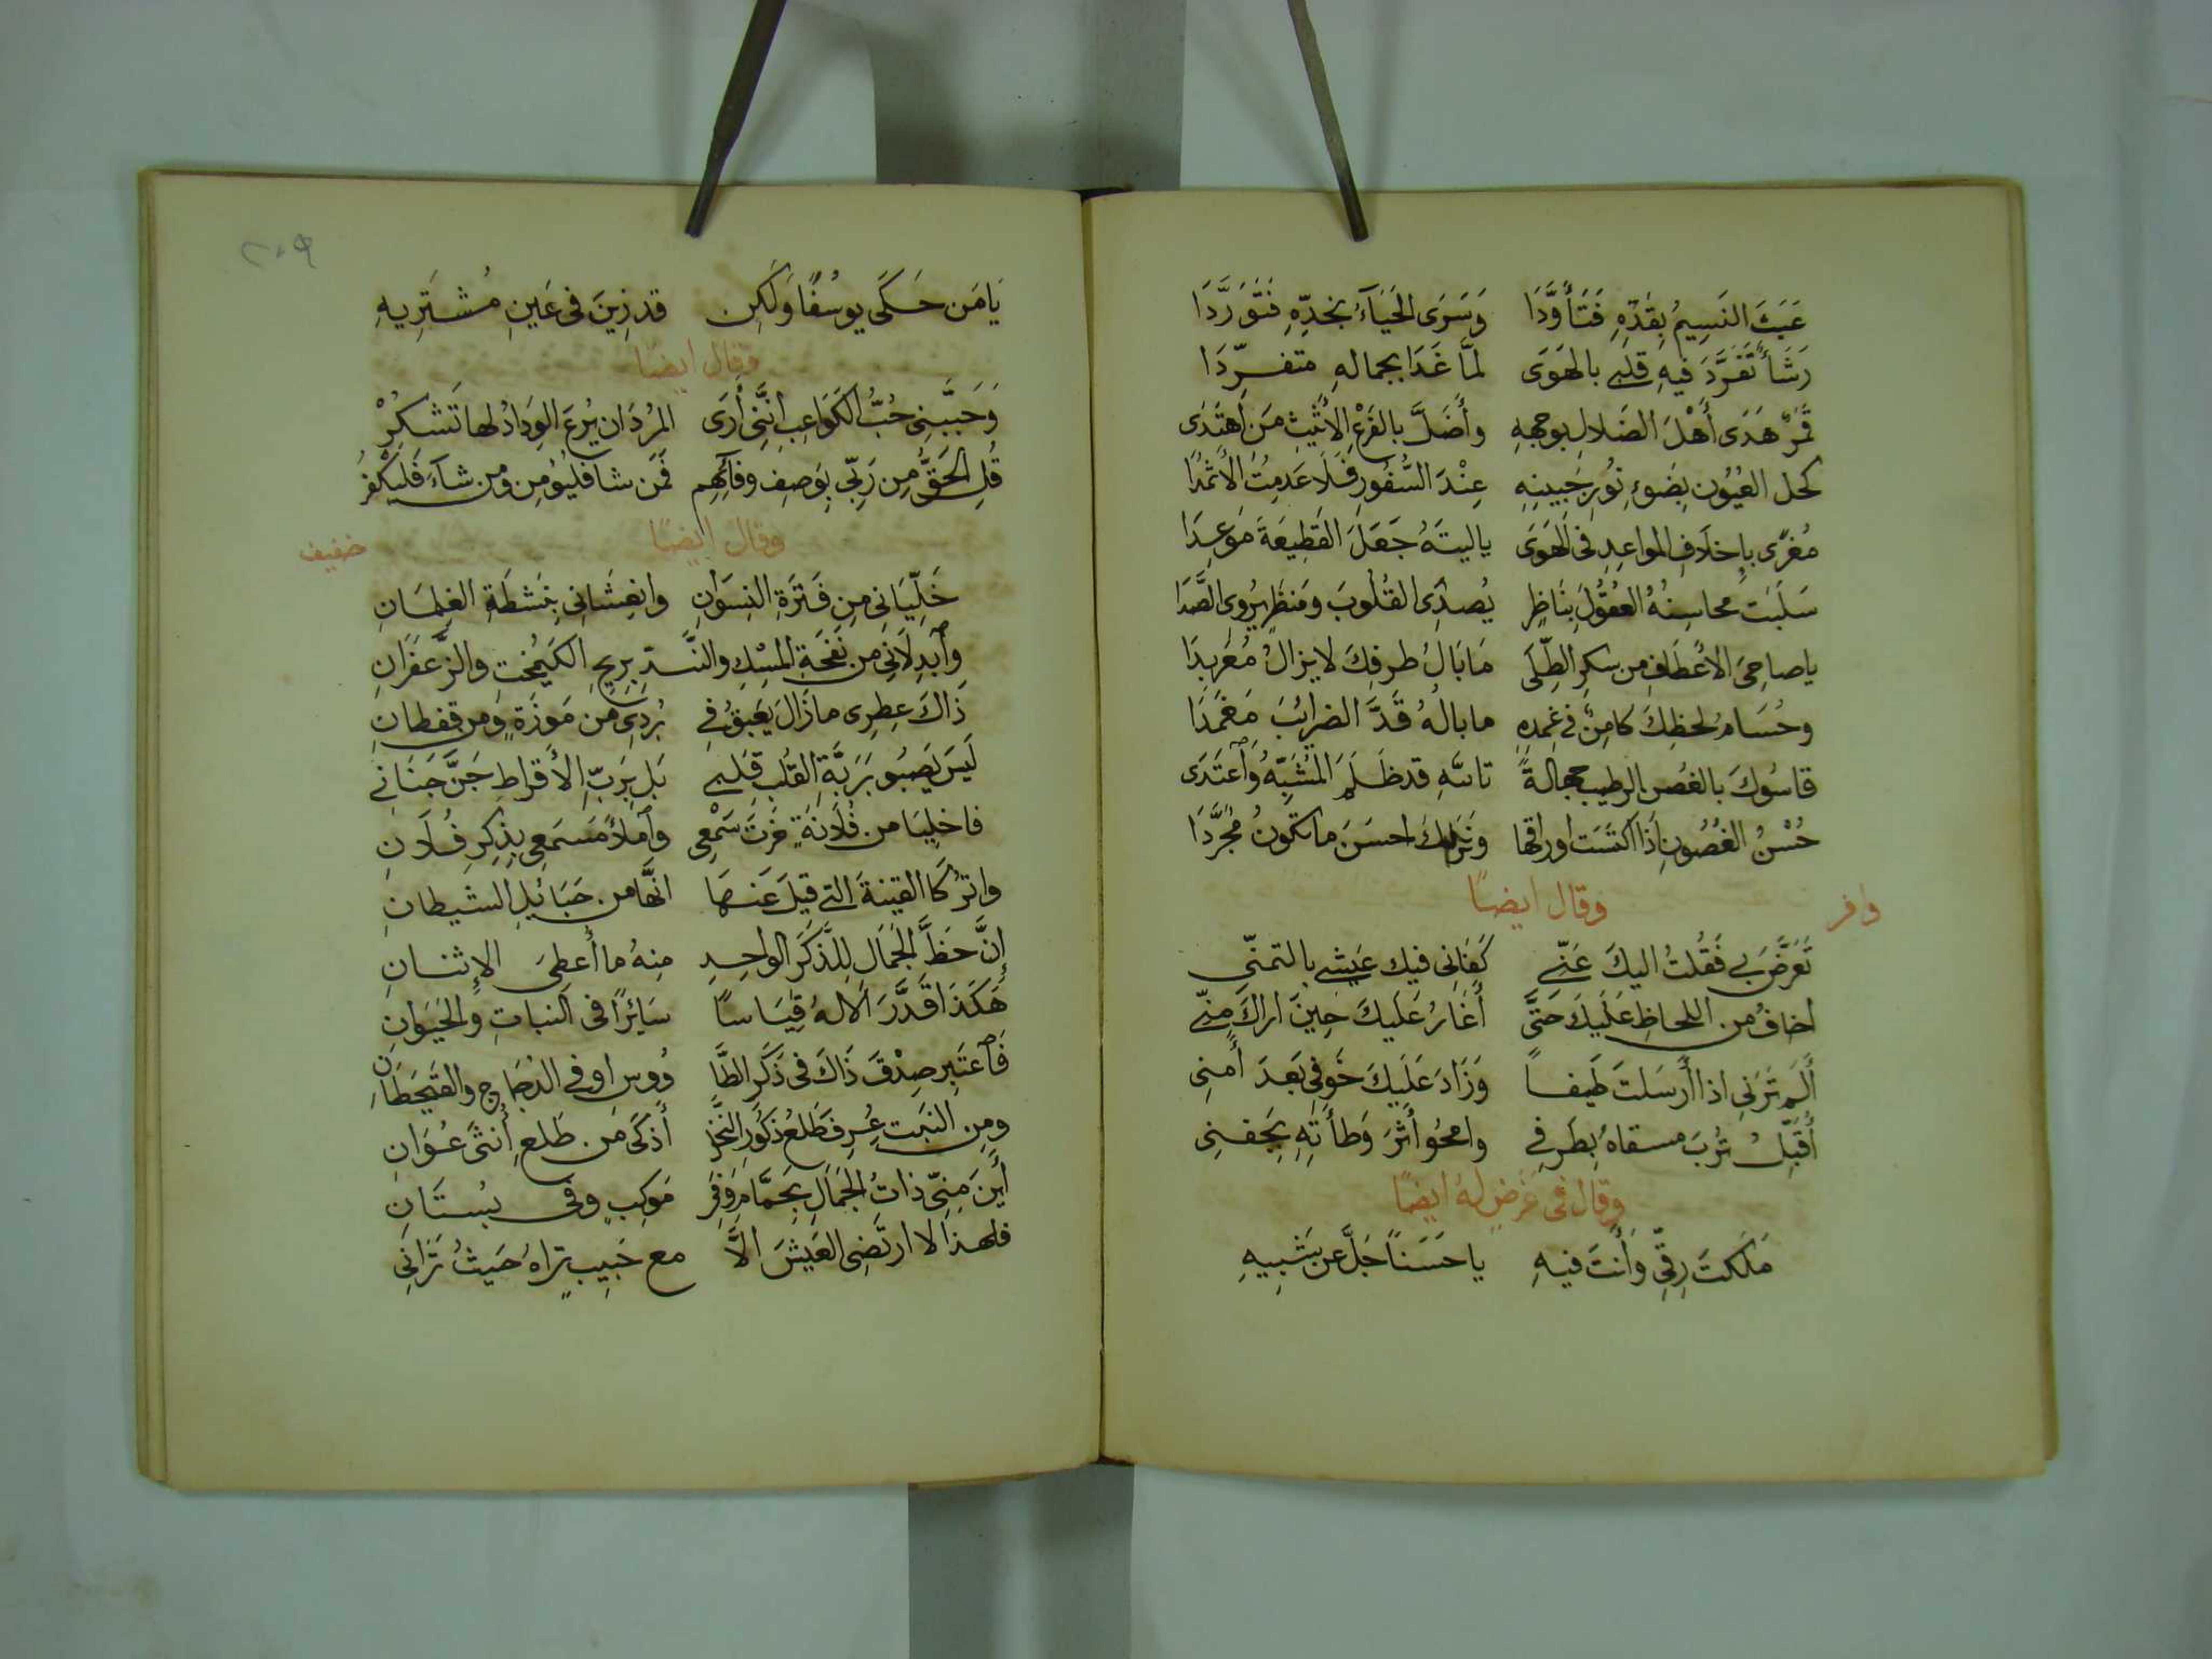 عَبَثَ النَسِيمُ بِقَدِّهِ فَتَأَوَّدَا وَسَرَى الحَيَآءُ بخدِّهِ فَتَوَرَّدَا
رَشَأٌ تَفَرَّدَ فيهِ قلبى بالهَوَى لمَّا غَدَا بجمالهِ متفرِّدَا
قَمَرٌ هَدَى أَهْلَ الضَلالِ بوجههِ وأَضَلَّ بالفَرْعِ الأَثِيثِ مَن اَهتَدَى
كحل العُيُون بِضَوءِ نُورِ جَبِينِهِ عِنْدَ السُّفُورِ فَلَا عَدِمتُ الأَثمُدَا
مُغرًى بإِخلَافِ المواعِدِ فى الهَوَى ياليتَهُ جَعَلَ القَطِيعَةَ مَوعِدَا
سَلَبَت محاسِنُهُ العُقُولَ بِنَاظِرٍ يُصدِى القُلُوبَ ومَنظَرٍ يُروِى الصَّدَا
ياصاحِىَ الأَعْطَافِ من سكرِ الطِّلَى مَابَالُ طرفِكَ لايزالُ مُعَربِدَا
وحُسَامُ لحظِكَ كامِنٌ فى غِمدِهِ مابالُهُ قَدَّ الضرائبَ مَغمَدَا
قاسُوكَ بالغُصنِ الرطيبِ جهالةً تاللهِ قد ظَلَمَ المُشَبِّهُ وَاَعتَدَى
حُسْنُ الغُصُونِ إِذَا اكتَسَت اوراقها ونَرَاكَ احسَنَ ماتكُونُ مُجَرَّدَا
وقال ايضًا وافر
تَعَرَّضَ بى فَقُلتُ اليكَ عَنِّى كَفَانِى فيك عَيشى بالتمنّى
اخافُ من اللحاظِ عَلَيكَ حَتَّى أَغَارُ عَلَيكَ حِينَ اراكَ مِنِّى
أَلَم تَرَنِى اذا أَرسَلتَ طَيفًا وَزَادَ عَلَيكَ خَوفِى بَعدَ أَمنِى
أُقَبِّلُ تُربَ مسقاهُ بِطَرفِى وامحُو أَثَرَ وَطأَتِهِ بِجَفنِى
وقال فى غَرَضٍ لهُ ايضًا
مَلَكتَ رِقِّى وَأَنتَ فيهِ ياحَسَنًا جَلَّ عن شَبِيهِ
يَامَن حَكَى يوسُفًا وَلَكِن قد زِينَ فى عَينِ مُشتَرِيهِ
وقال ايضًا
وَحَبَّبَنِى حُبُّ الكَوَاعِبِ انَّنِى أَرَى المُردَان يُرعَ الوِدَادُ لها تَشكرُ
قُلِ الحَقُّ مِن رَبِّى بِوَصفِ وفائِهِم فَمَن شا فليُومِن ومن شآءَ فَليَكفُرُ
وقال ايضًا خفيف
خَلِّيَانِى مِن فَترَةِ النِسوَانِ وانعِشَانِى بِنَشطَةِ الغِلمَانِ
وأَبدِلَانِى من نَفحَةِ المِسْكِ والنَّدِّ بريحِ الكَيمُختِ والزَّعفَرَانِ
ذَاكَ عِطرِى مازَالَ يَعبَقُ فى بُردِىَ مِن مَوزَةٍ وَمن قفطانِ
لَيسَ يَصبُو بِرَبَّةِ القُلبِ قَلبِى بَل بِرَبِّ الأَقراطِ جَنَّ جَنَانِى
فاخلِيَا من فُلَانَةٍ خَرتَ سَمْعِى وَاَملأَ مَسمَعِى بِذِكرِ فُلَانِ
واترُكَا القينةَ التى قيلَ عَنهَا انَّهَا من حَبَائِلِ الشيطانِ
إِنَّ حَظَّ الجَمَالِ لِلذَّكَرِ الواحِدِ مِنهُ ما أُعطِىَ الإِثنانِ
هَكَذَا قَدَّرَ الالهُ قِيَاسًا سَائِرًا فى النباتِ وَالحَيَوَانِ
فَاَعتَبِر صِدْقَ ذَاكَ فى ذَكَرِ الطَّا وُوسِ او فى الدُجَاجِ والقَيحَطَانِ
ومِن النَبتِ عُرِف فَطَلعُ ذكُورِ النَّخلِ أَذكَى من طَلعِ أُنثَى عُوَانِ
أَينَ مِنِّى ذاتُ الجَمَالِ بِحَمَّامٍ وفى مَوكِبٍ وفى بُستَانِ
فلهذا لا ارتَضِى العَيشَ الَّا مع حَبِيبٍ تراهُ حَيثُ تَرَانِى
٢٠٩